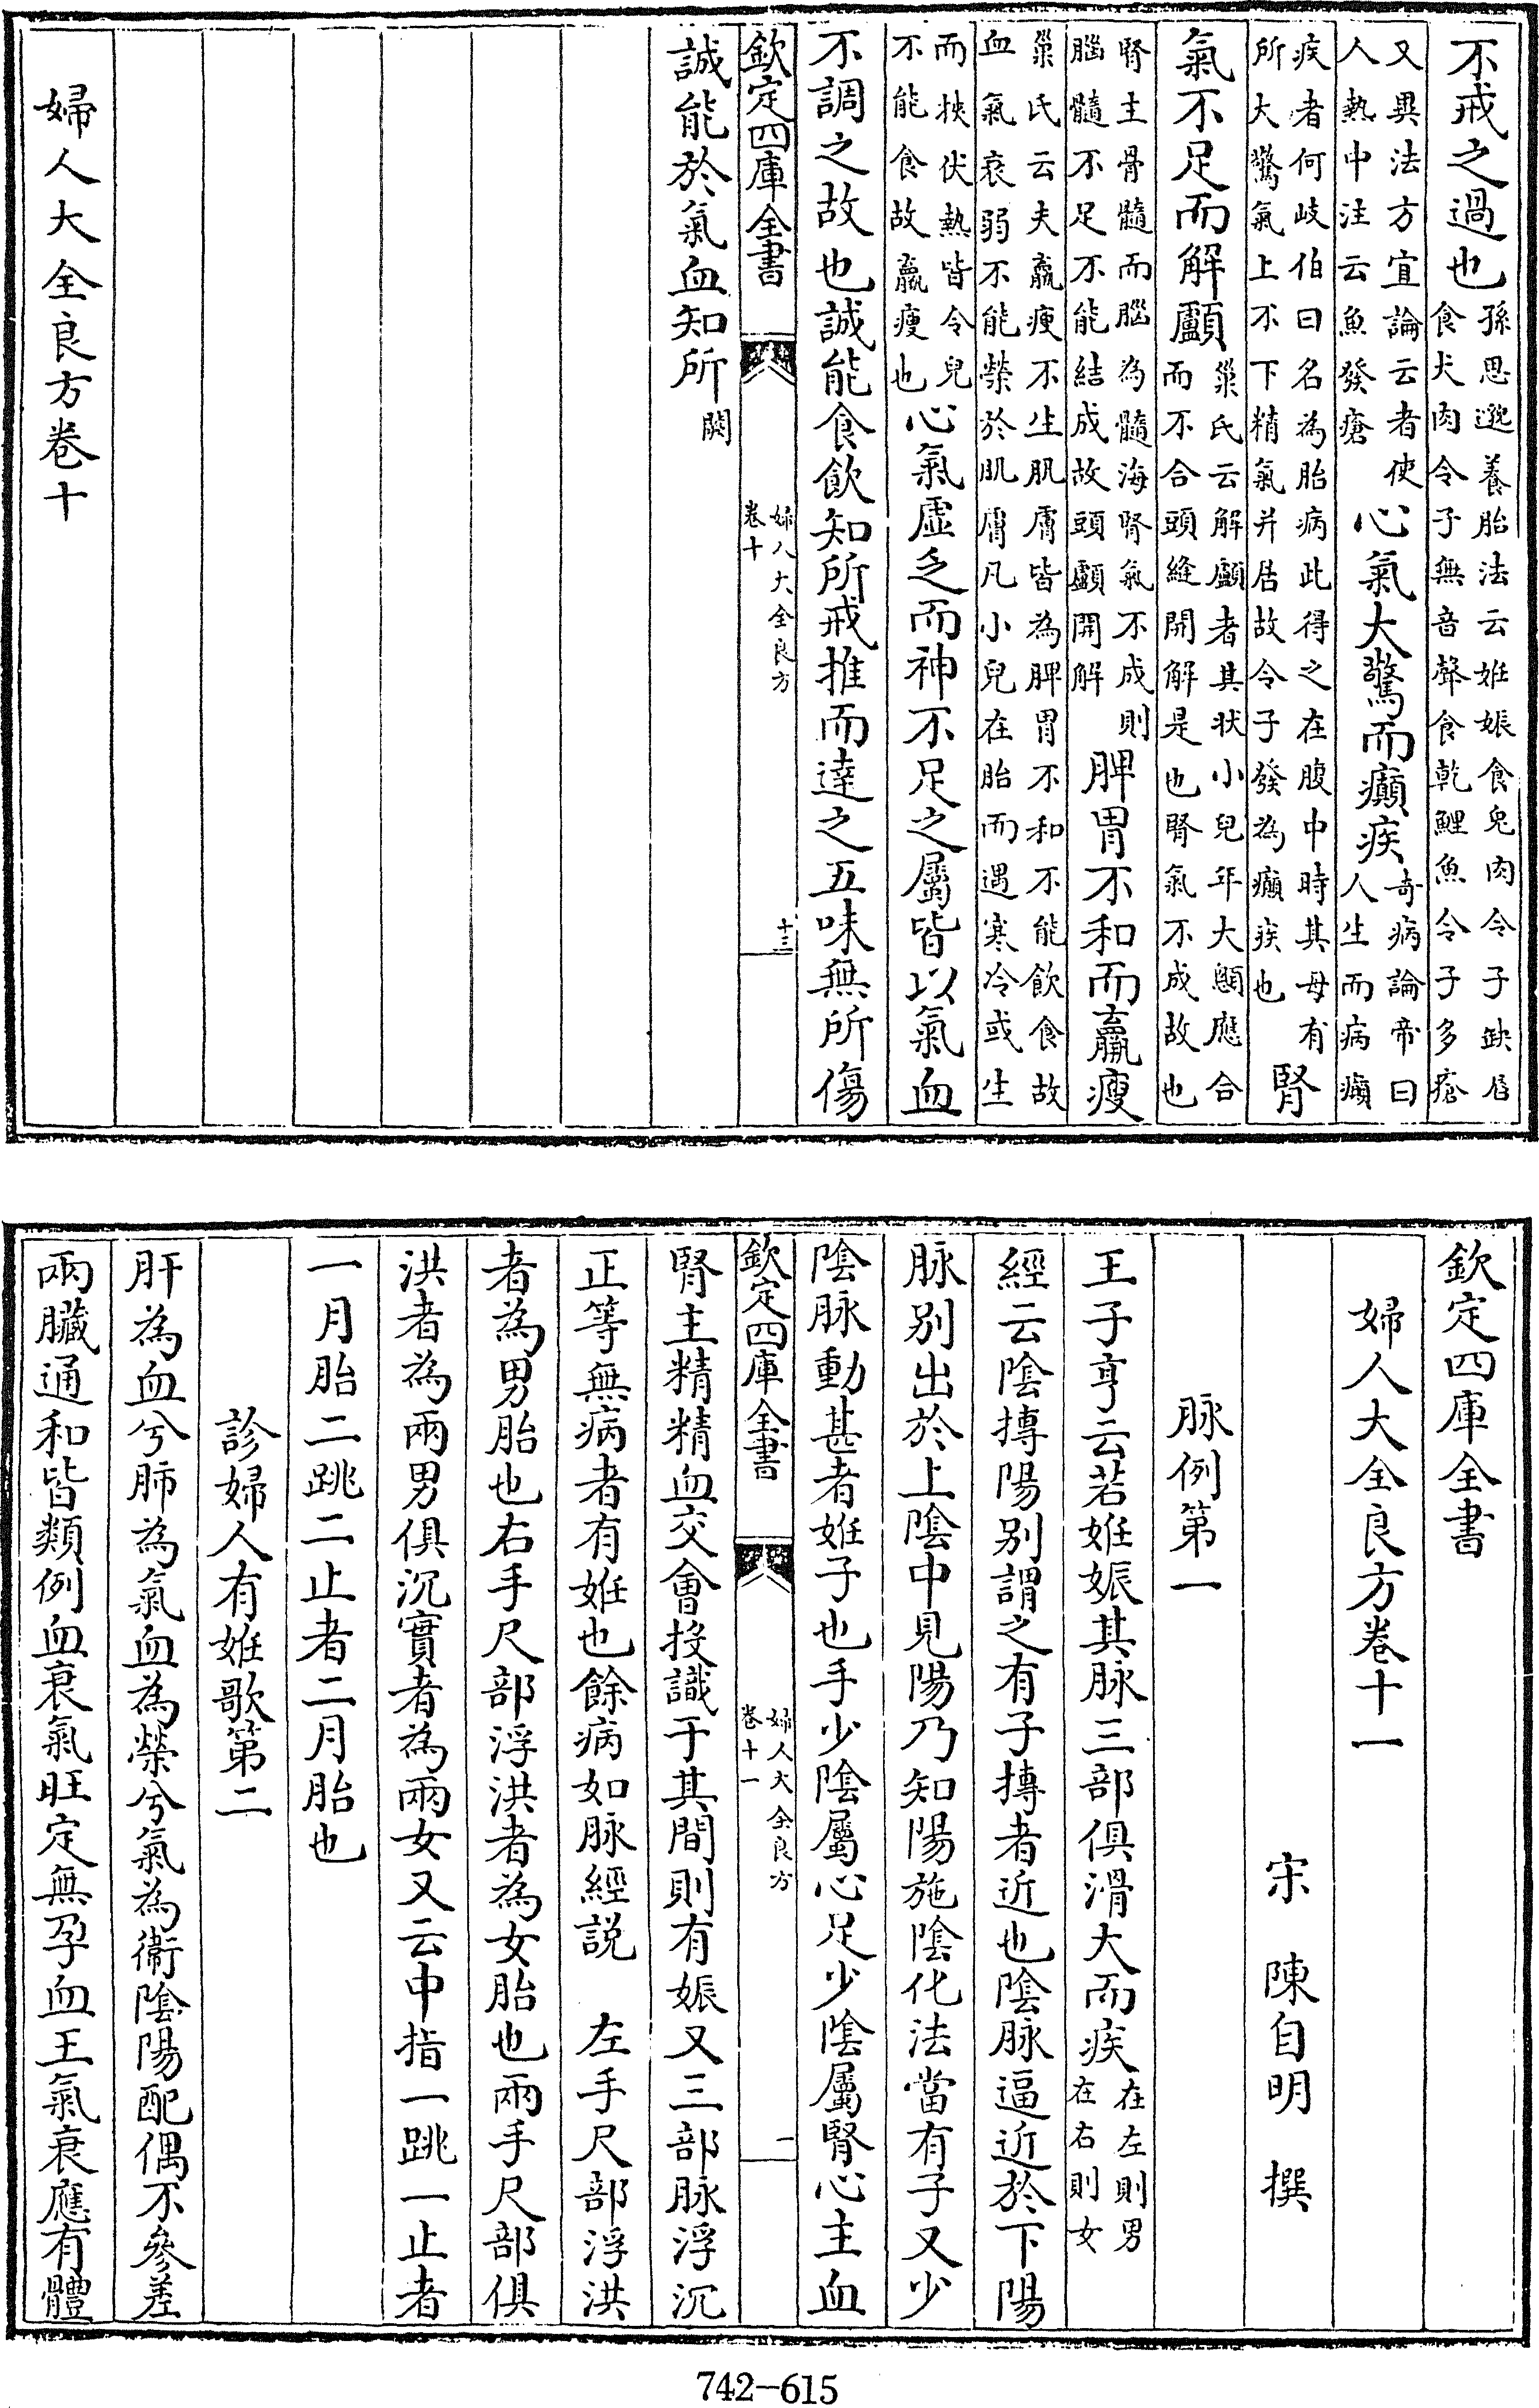 不戒之過也孫思邈養胎法云姙娠食兔肉令子缺唇食犬肉令子無音聲食乾鯉魚令子多瘡
又異法方宜論云者使人熱中注云魚發瘡心氣大驚而癲疾奇病論帝曰人生而病癲
疾者何歧伯曰名為胎病此得之在腹中時其母有所大驚氣上不下精氣并居故令子發為癲疾也腎
氣不足而解顱巢氏云解顱者其狀小兒年大顖應合而不合頭縫開解是也腎氣不成故也
腎主骨髓而腦為髓海腎氣不成則腦髓不足不能結成故頭顱開解脾胃不和而羸瘦
巢氏云夫羸瘦不生肌膚皆為脾胃不和不能飲食故血氣衰弱不能榮於肌膚凡小兒在胎而遇寒冷或生
而挾伏熱皆令兒不能食故羸瘦也心氣虛乏而神不足之屬皆以氣血
不調之故也誠能食飲知所戒推而達之五味無所傷
欽定四庫全書 婦人大全良方 卷十 十三
誠能於氣血知所闕
婦人大全良方卷十
欽定四庫全書
婦人大全良方卷十一
宋 陳自明 撰
脉例第一
王子亨云若姙娠其脉三部俱滑大而疾在左則男在右則女
經云陰摶陽别謂之有子摶者近也陰脉逼近於下陽
脉别出於上陰中見陽乃知陽施陰化法當有子又少
陰脉動甚者姙子也手少陰屬心足少陰屬腎心主血
欽定四庫全書 婦人大全良方 卷十一 一
腎主精精血交會投識于其間則有娠又三部脉浮沉
正等無病者有姙也餘病如脉經説 左手尺部浮洪
者為男胎也右手尺部浮洪者為女胎也兩手尺部俱
洪者為兩男俱沉實者為兩女又云中指一跳一止者
一月胎二跳二止者二月胎也
診婦人有姙歌第二
肝為血兮肺為氣血為榮兮氣為衛陰陽配偶不參差
兩臟通和皆類例血衰氣旺定無孕血王氣衰應有體
742-615